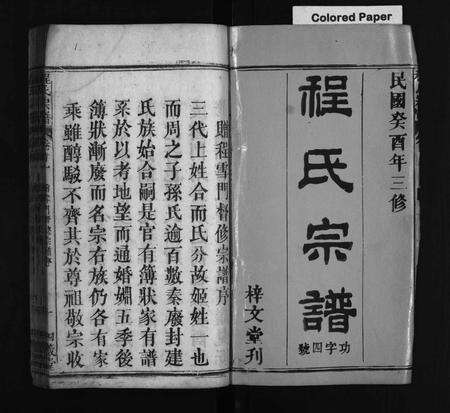 Colored Paper
民國癸酉年三修
程氏宗譜
功字四號
梓文堂刊
贈程雪門督修宗譜序
三代上姓合而氏分故姬姓一也
而周之子孫氏逾百數秦廢封建
氏族始合嗣是官有簿狀家有譜
系於以考地望而通婚媾五季後
簿狀漸廢而名宗右族仍各有家
乘雖醇駁不齊其於尊祖敬宗收